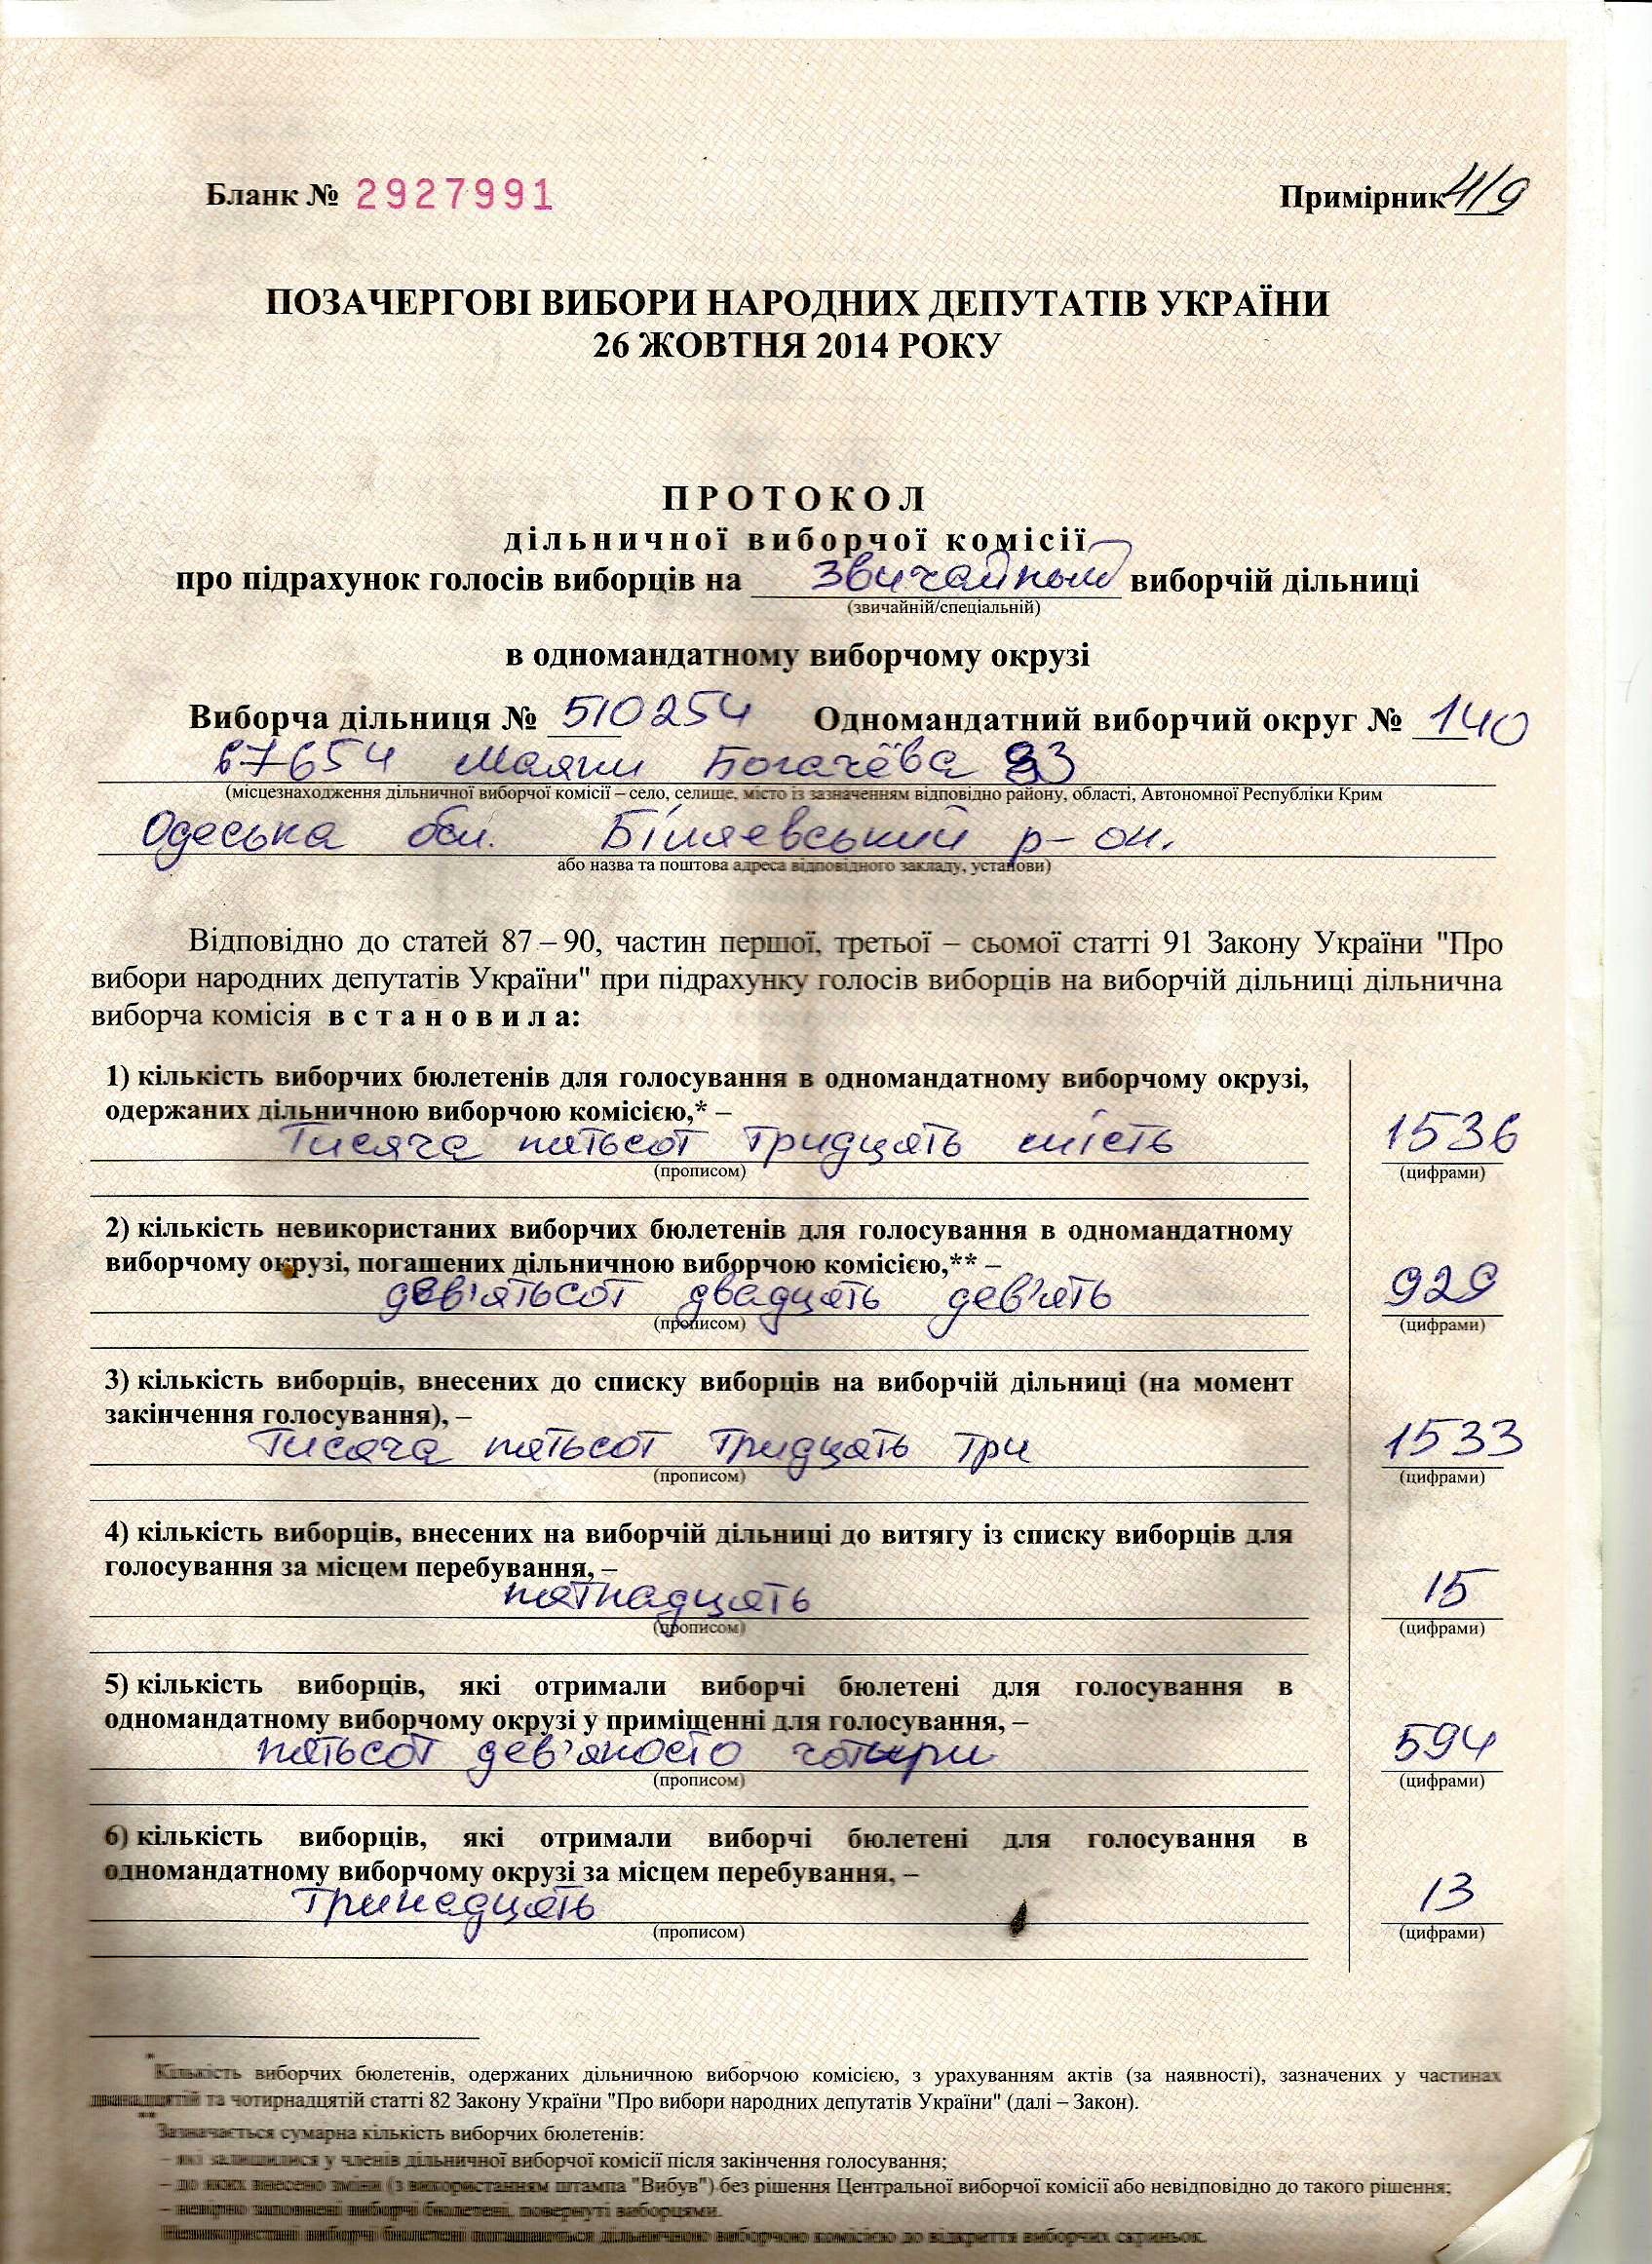 Бланк № 2927991 Примірник 4/9
ПОЗАЧЕРГОВІ ВИБОРИ НАРОДНИХ ДЕПУТАТІВ УКРАЇНИ
26 ЖОВТНЯ 2014 РОКУ
ПРОТОКОЛ
дільничної виборчої комісії
про підрахунок голосів виборців на звичайный виборчій дільниці
(звичайній/спеціальній)
в одномандатному виборчому окрузі
Виборча дільниця № 510254 Одномандатний виборчий округ № 140
67654 Маяки Богачёва 83
(місцезнаходження дільничної виборчої комісії – село, селище, місто із зазначенням відповідно району, області, Автономної Республіки Крим
Одеська обл. Біляевський р-он.
або назва та поштова адреса відповідного закладу, установи)
Відповідно до статей 87 – 90, частин першої, третьої – сьомої статті 91 Закону України "Про
вибори народних депутатів України" при підрахунку голосів виборців на виборчій дільниці дільнична
виборча комісія встановила:
1) кількість виборчих бюлетенів для голосування в одномандатному виборчому окрузі,
одержаних дільничною виборчою комісією,* –
Тисяча пятьсот тридцять шість 1536
(прописом) (цифрами)
2) кількість невикористаних виборчих бюлетенів для голосування в одномандатному
виборчому окрузі, погашених дільничною виборчою комісією,** –
дев'ятьсот двадцять дев'ять 929
(прописом) (цифрами)
3) кількість виборців, внесених до списку виборців на виборчій дільниці (на момент
закінчення голосування), –
Тисяча пятьсот тридцять три 1533
(прописом) (цифрами)
4) кількість виборців, внесених на виборчій дільниці до витягу із списку виборців для
голосування за місцем перебування, –
пятнадцять 15
(прописом) (цифрами)
5) кількість виборців, які отримали виборчі бюлетені для голосування в
одномандатному виборчому окрузі у приміщенні для голосування, –
пятьсот дев'яносто чотири 594
(прописом) (цифрами)
6) кількість виборців, які отримали виборчі бюлетені для голосування в
одномандатному виборчому окрузі за місцем перебування, –
тринадцять 13
(прописом) (цифрами)
* Кількість виборчих бюлетенів, одержаних дільничною виборчою комісією, з урахуванням актів (за наявності), зазначених у частинах
дванадцятій та чотирнадцятій статті 82 Закону України "Про вибори народних депутатів України" (далі – Закон).
** Зазначається сумарна кількість виборчих бюлетенів:
– які залишилися у членів дільничної виборчої комісії після закінчення голосування;
– до яких внесено зміни (з використанням штампа "Вибув") без рішення Центральної виборчої комісії або невідповідно до такого рішення;
– невірно заповнені виборчі бюлетені, повернуті виборцями.
Невикористані виборчі бюлетені погашаються дільничною виборчою комісією до відкриття виборчих скриньок.